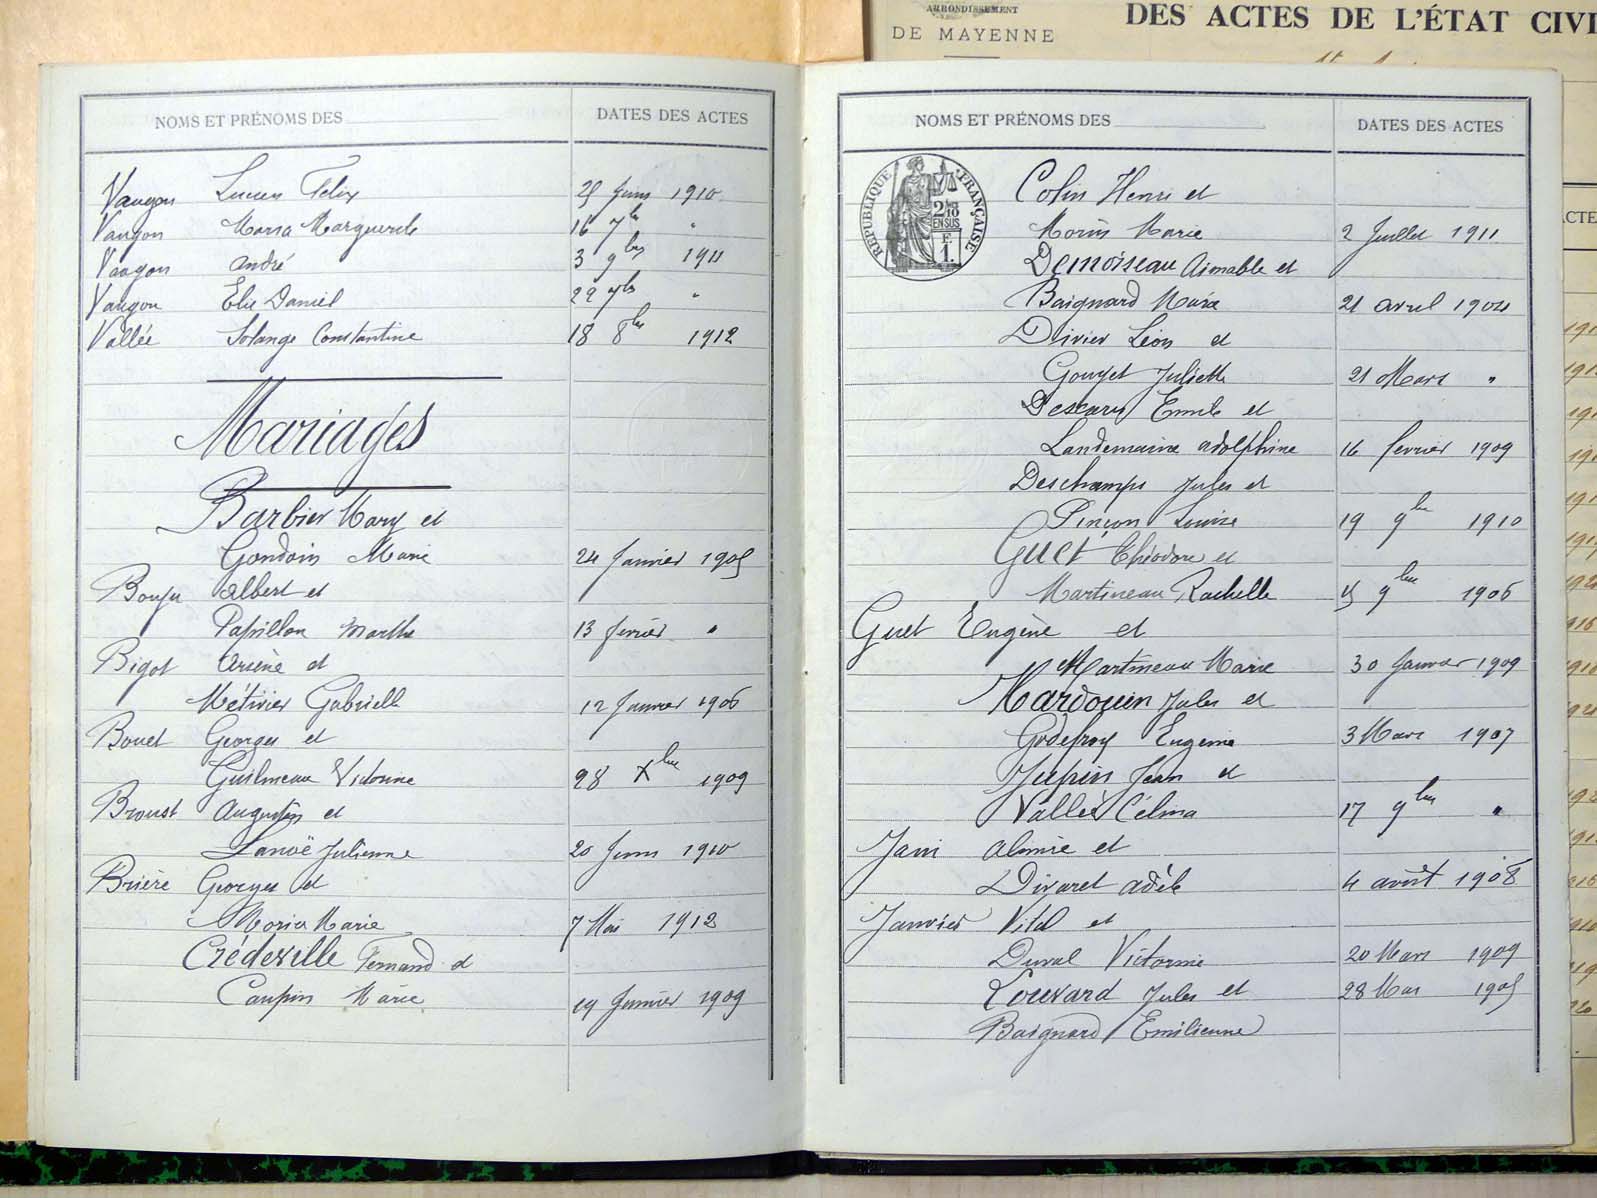 ARRONDISSEMENT
DE MAYENNE
DES ACTES DE L'ÉTAT CIVI
NOMS ET PRÉNOMS DES
DATES DES ACTES
Vaugon Lucien Felix 25 Juin 1910
Vaugon Maria Marguerite 16 7bre "
Vaugon André 3 9bre 1911
Vaugon Elie Daniel 22 7bre "
Vallée Solange Constantine 18 8bre 1912
Mariages
Barbier Mary et
Gondoin Marie 24 Janvier 1905
Bouju Albert et
Papillon Marthe 13 février "
Bigot Arsène et
Métivier Gabrielle 12 Janvier 1906
Bouet Georges et
Guilmeau Victorine 28 Xbre 1909
Broust Augustin et
Lanoë Julienne 20 Juin 1910
Brière Georges et
Morin Marie 7 Mai 1912
Crédeville Fernand et
Caupin Marie 19 Janvier 1909
NOMS ET PRÉNOMS DES
DATES DES ACTES
RÉPUBLIQUE FRANÇAISE
2/10
EN SUS
F.
1.
Colin Henri et
Morin Marie 2 Juillet 1911
Demoiseau Aimable et
Baignard Maria 21 avril 1904
Divier Léon et
Gouyet Juliette 21 Mars "
Descary Emile et
Landemaine adolphine 16 fevrier 1909
Deschamps Jules et
Pinçon Louise 19 9bre 1910
Guet Théodore et
Martineau Rachelle 15 9bre 1906
Guet Eugène et
Martineau Marie 30 Janvier 1909
Hardouin Jules et
Godefroy Eugenie 3 Mars 1907
Jupin Jean et
Vallée Célina 17 9bre "
Jarri almire et
Divaret adèle 4 août 1908
Janvier Vital et
Duval Victorine 20 Mars 1909
Louvard Jules et 28 Mars 1905
Baignard Emilienne